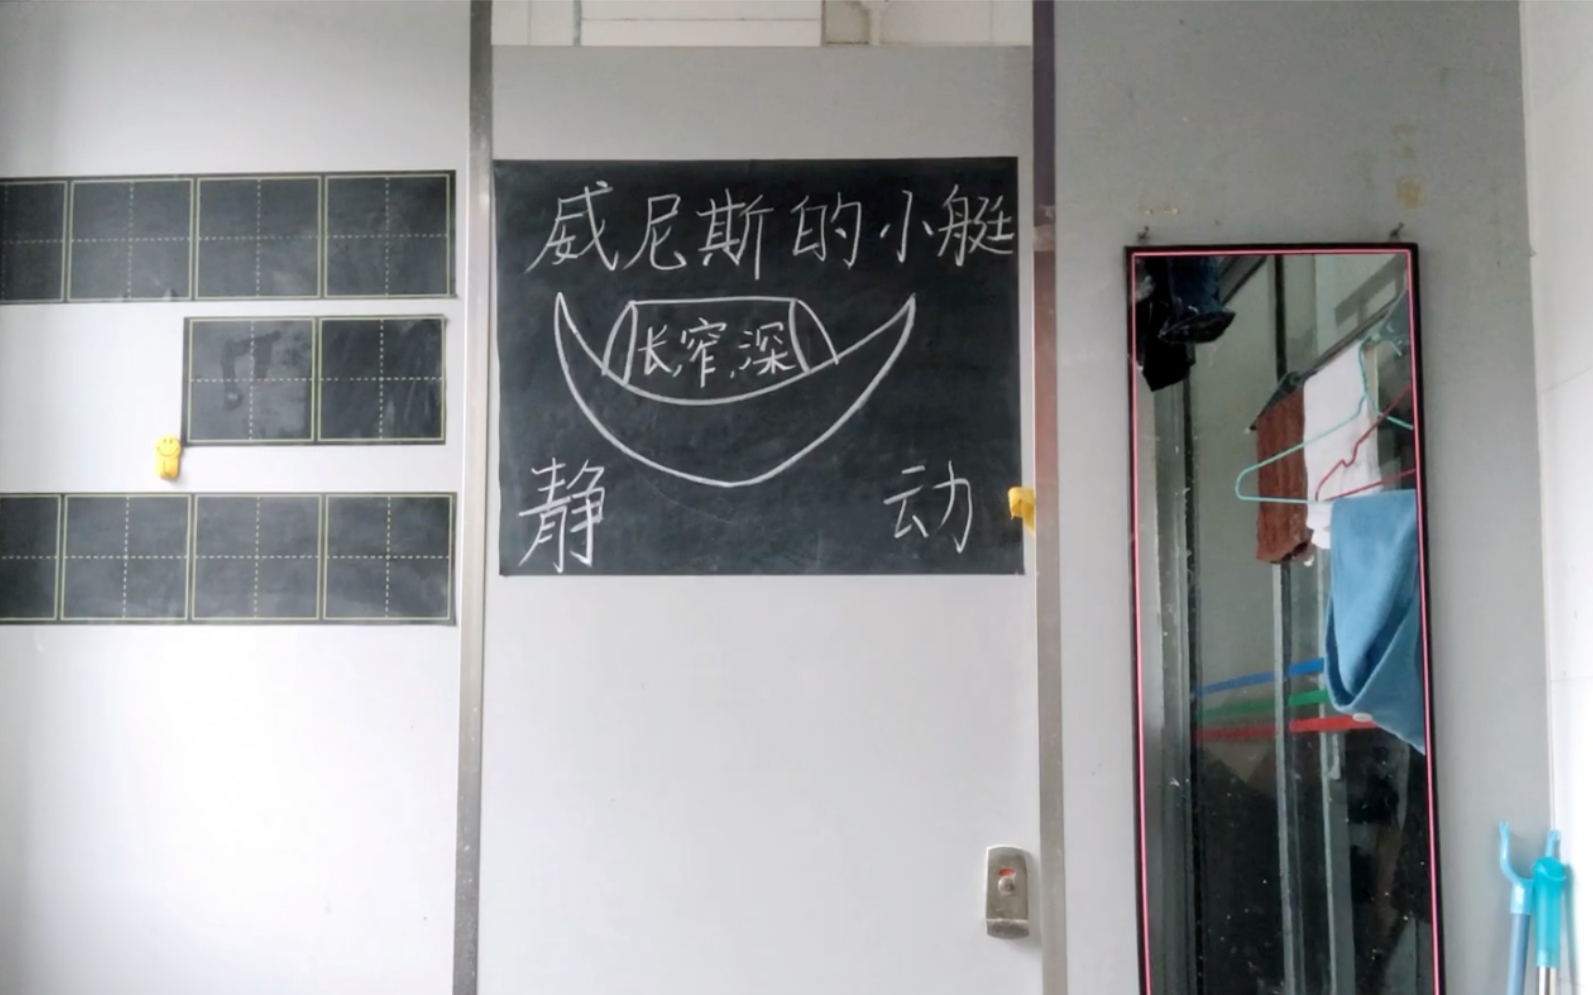 威尼斯的小艇
长、窄、深
静 动